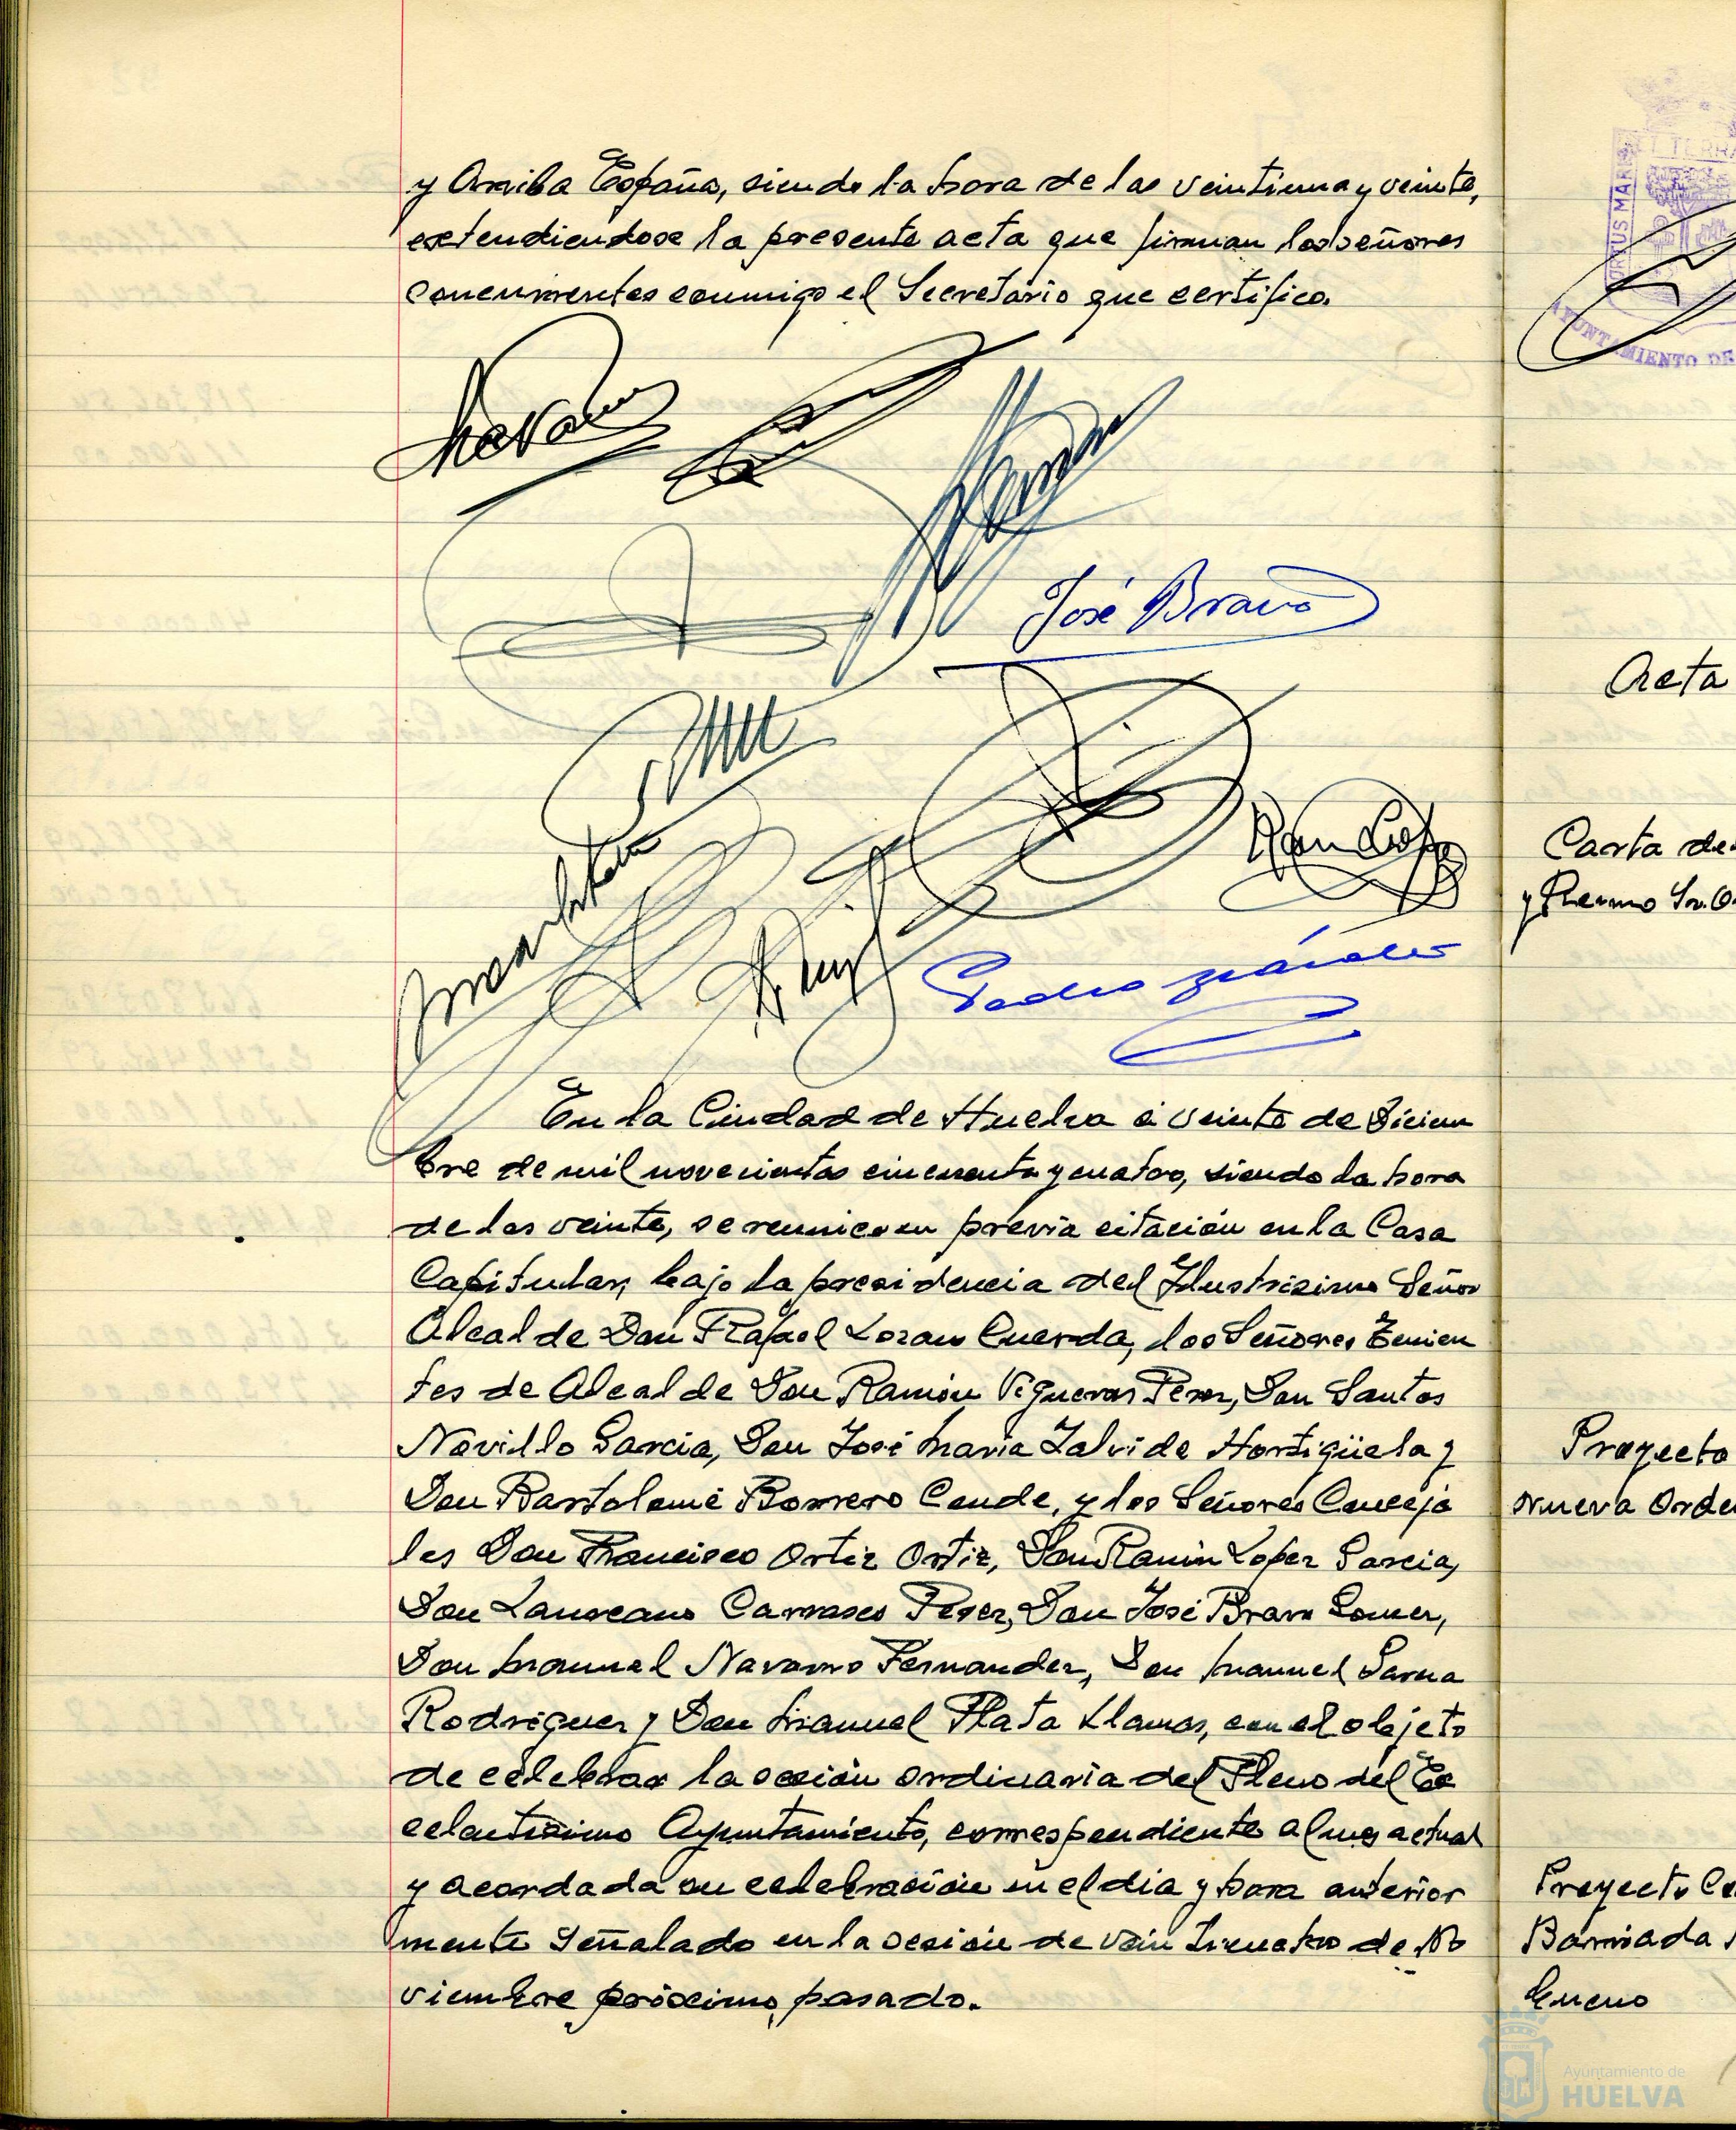 y Arriba España, siendo la hora de las veintiuna y veinte,
extendiendose la presente acta que firman los señores
concurrentes conmigo el Secretario que certifico.
José Bravo
Pedro
En la Ciudad de Huelva á veinte de Diciem
bre de mil novecientos cincuenta y cuatro, siendo la hora
de las veinte, se reunieron previa citación en la Casa
Capitular, bajo la presidencia del Ilustrisimo Señor
Alcalde Don Rafael Lozano Cuerda, los Señores Tenien
tes de Alcalde Don Ramón Vigueras Perez, Don Santos
Novillo Garcia, Don José Maria Zalvide Hortigüela y
Don Bartolomé Romero Conde, y los Señores Conceja
les Don Francisco Ortiz Ortiz, Don Ramón Lopez Garcia,
Don Laureano Carrasco Perez, Don José Bravo Gomez,
Don Manuel Navarro Fernandez, Don Manuel Garcia
Rodriguez y Don Manuel Plata Llamas, con el objeto
de celebrar la sesión ordinaria del Pleno del Ex
celentisimo Ayuntamiento, correspondiente al mes actual
y acordada su celebración en el dia y hora anterior
mente señalado en la sesión de veinticuatro de No
viembre próximo pasado.
AYUNTAMIENTO DE
Acta
Carta de
y Sr.
Proyecto
nueva Orde
Proyecto
Barriada
Ayuntamiento de
HUELVA